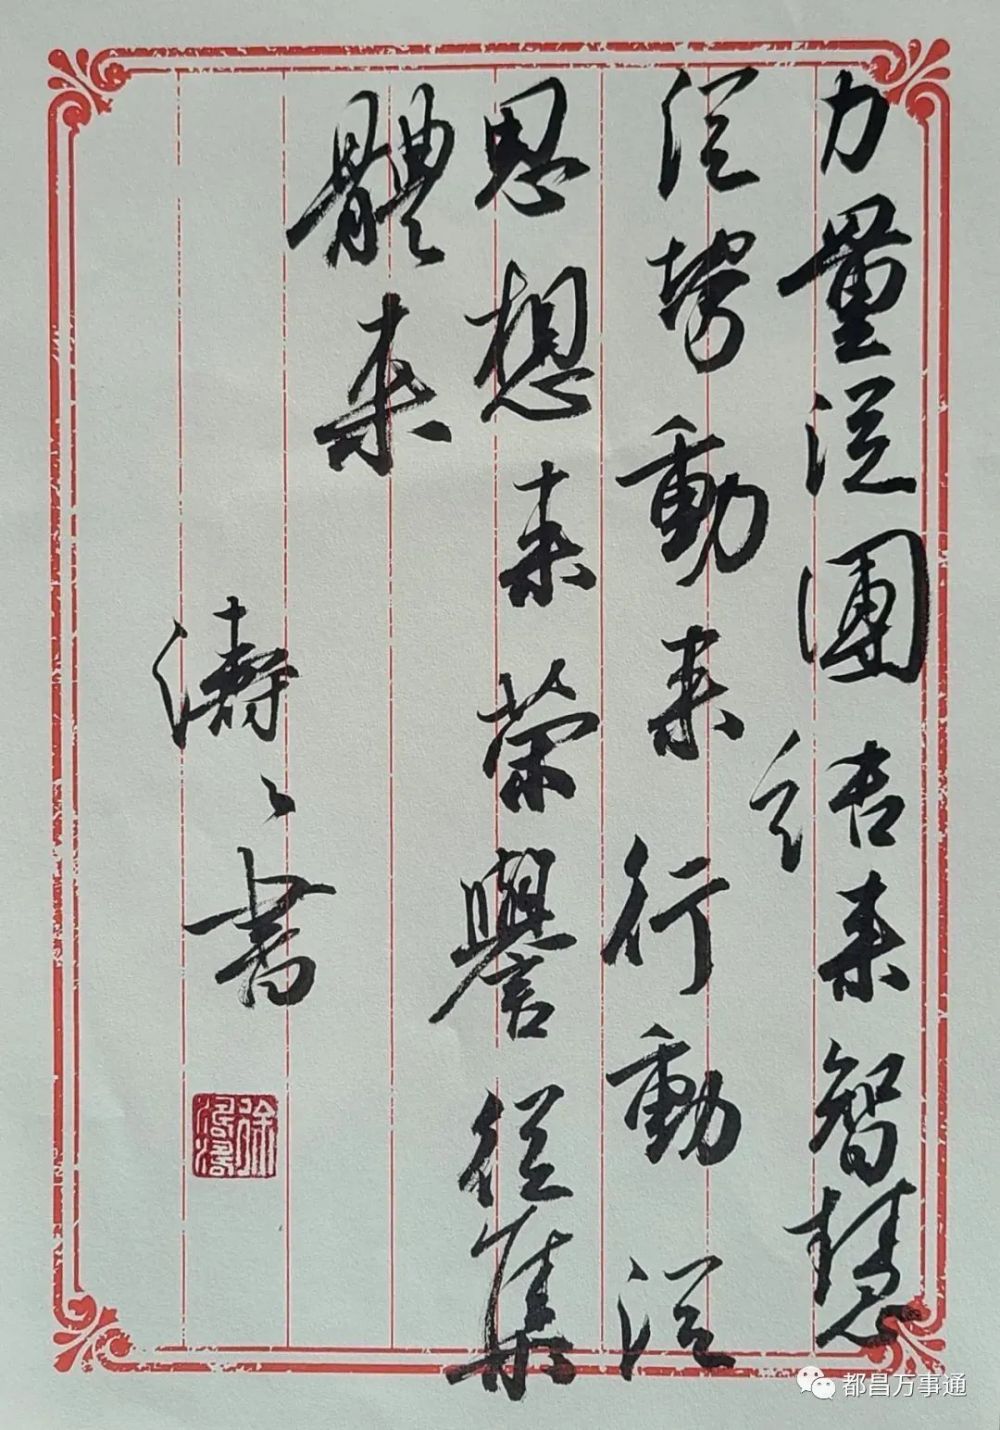 力量從團結来智慧
從勞動来行動從
思想来荣譽從集
體来
濤々書
徐濤濤
都昌万事通